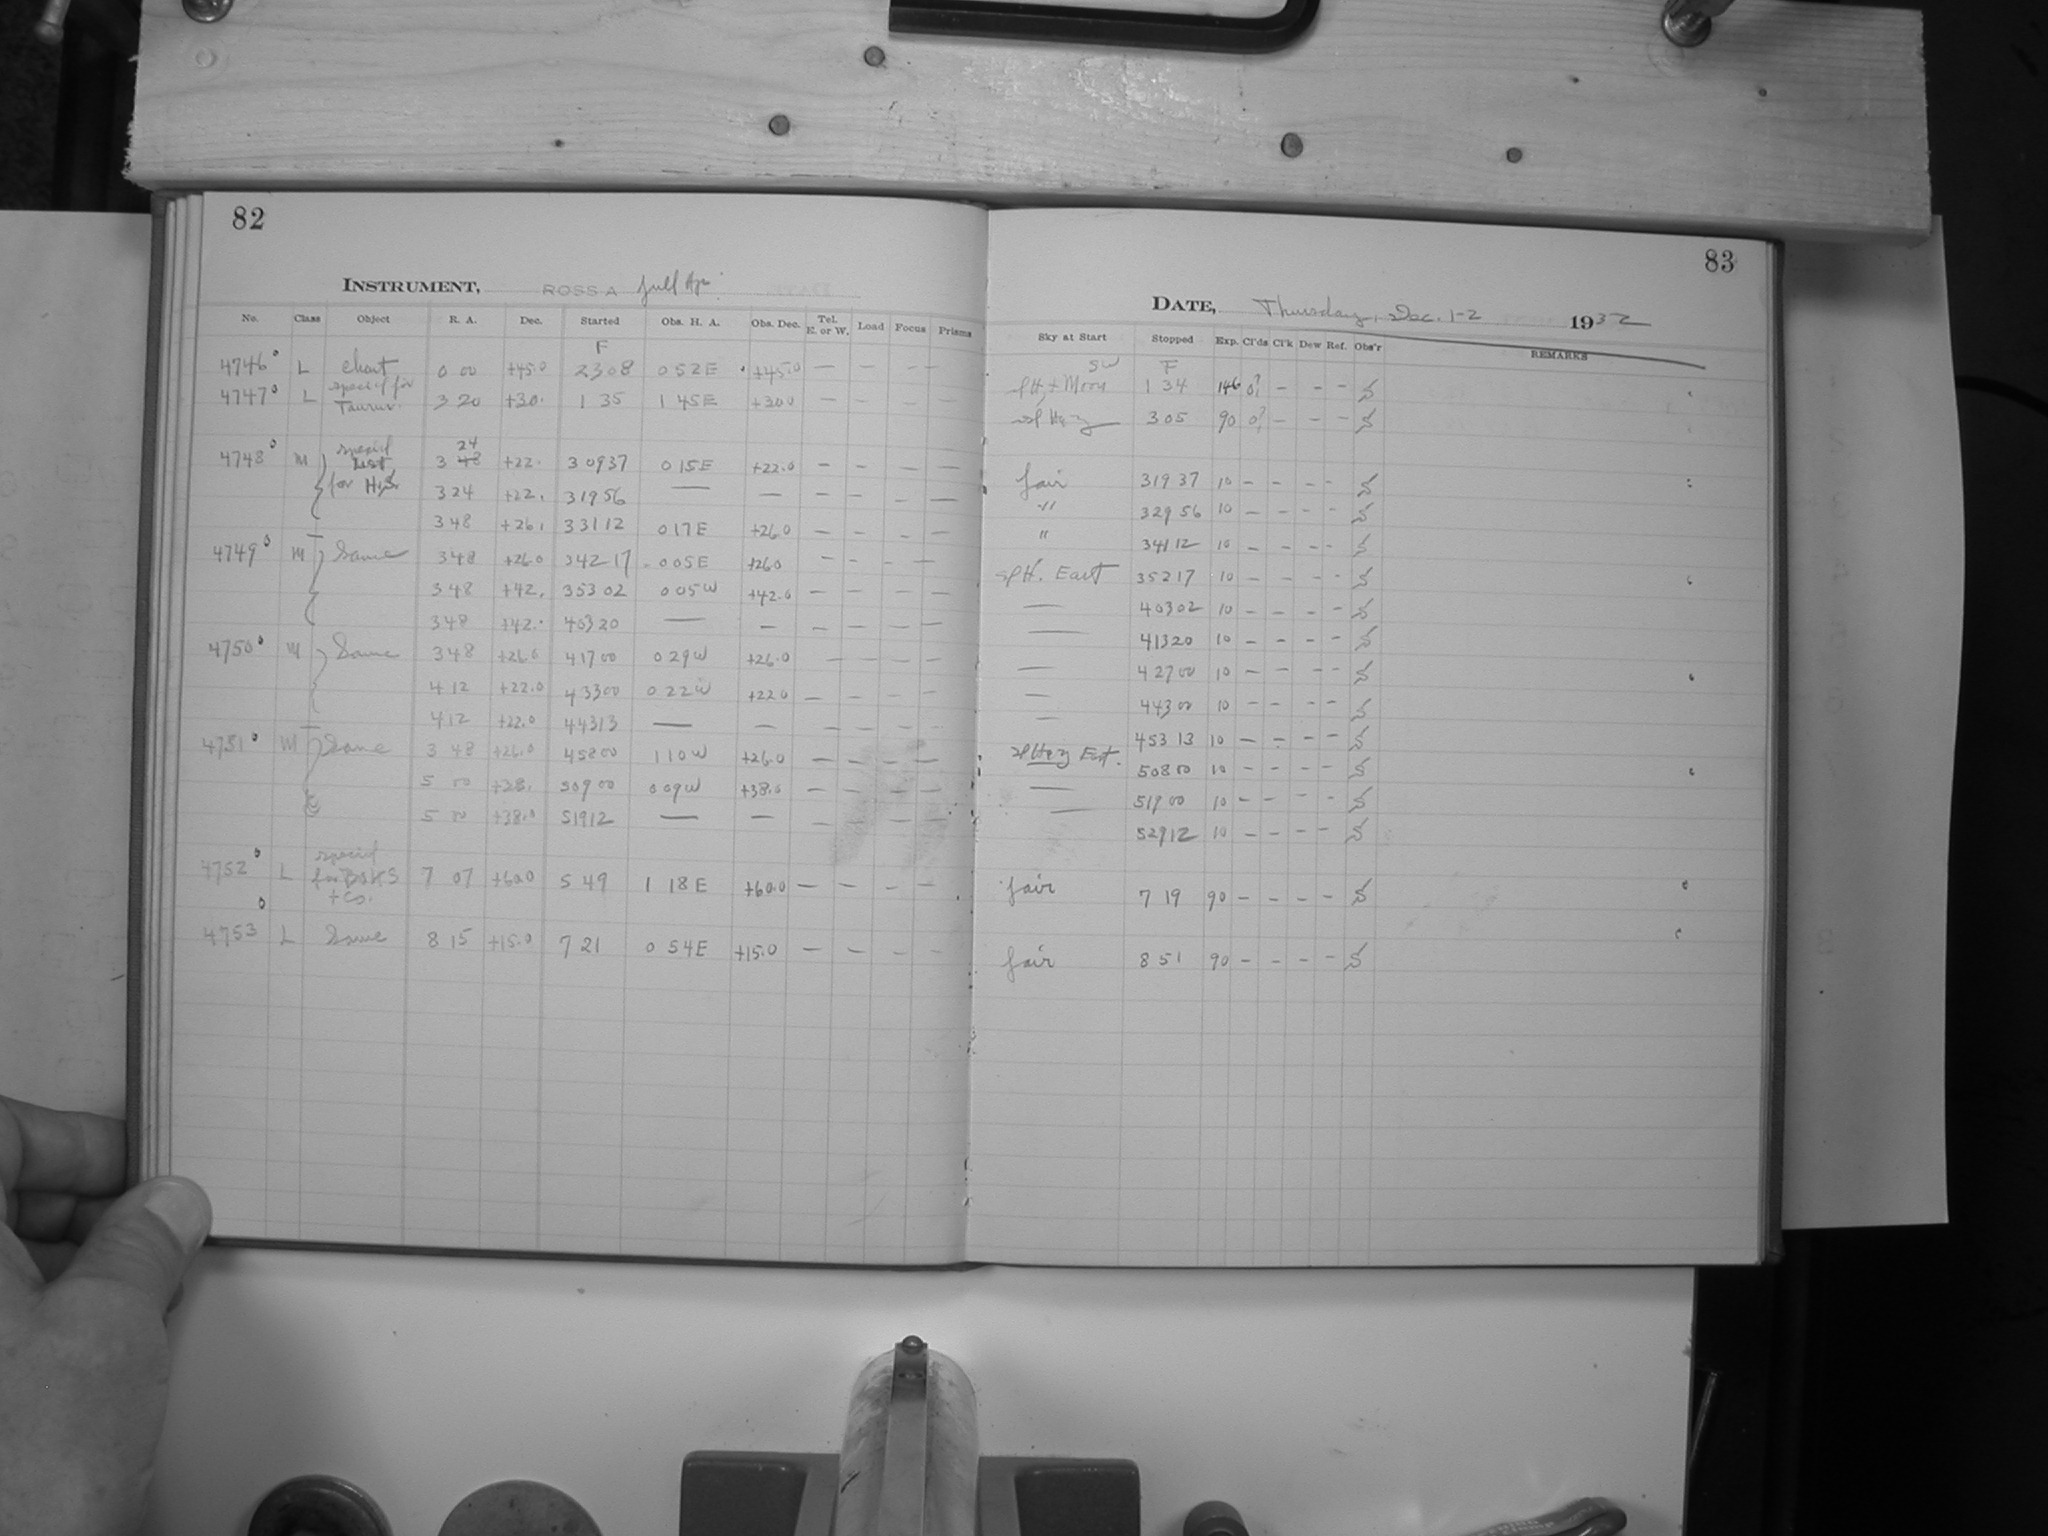 82
INSTRUMENT, ROSS A full Ap.
No. Class Object R. A. Dec. Started Obs. H. A. Obs. Dec. Tel. E. or W. Load Focus Prisms
F
4746 L chart 0 00 +45.0 23 08 0 52 E +45.0 — — — —
4747 L special for Taurus. 3 20 +30. 1 35 1 45 E +30.0 — — — —
4748 M special List for H.S. 3 48 24 +22. 3 09 37 0 15 E +22.0 — — — —
3 24 +22. 3 19 56 — — — — — —
3 48 +26. 3 31 12 0 17 E +26.0 — — — —
4749 M Same 3 48 +26.0 3 42 17 0 05 E +26.0 — — — —
3 48 +42. 3 53 02 0 05 W +42.0 — — — —
3 48 +42. 4 03 20 — — — — — —
4750 M Same 3 48 +26.0 4 17 00 0 29 W +26.0 — — — —
4 12 +22.0 4 33 00 0 22 W +22.0 — — — —
4 12 +22.0 4 43 13 — — — — — —
4751 M Same 3 48 +26.0 4 58 00 1 10 W +26.0 — — — —
5 00 +38. 5 09 00 0 09 W +38.0 — — — —
5 00 +38.0 5 19 12 — — — — — —
4752 L special for BOKS + Co. 7 07 +60.0 5 49 1 18 E +60.0 — — — —
4753 L Same 8 15 +15.0 7 21 0 54 E +15.0 — — — —
83
DATE, Thursday, Dec. 1-2 1932
Sky at Start Stopped Exp. Cl'ds Cl'k Dew Ref. Obs'r REMARKS
SW F
+ Moon 1 34 146 0? — — — S
Hazy 3 05 90 0? — — — S
fair 3 19 37 10 — — — — S
" 3 29 56 10 — — — — S
" 3 41 12 10 — — — — S
East 3 52 17 10 — — — — S
— 4 03 02 10 — — — — S
— 4 13 20 10 — — — — S
— 4 27 00 10 — — — — S
— 4 43 00 10 — — — — S
— 4 53 13 10 — — — — S
Hazy East. 5 08 00 10 — — — — S
— 5 19 00 10 — — — — S
— 5 29 12 10 — — — — S
fair 7 19 90 — — — — S
fair 8 51 90 — — — — S